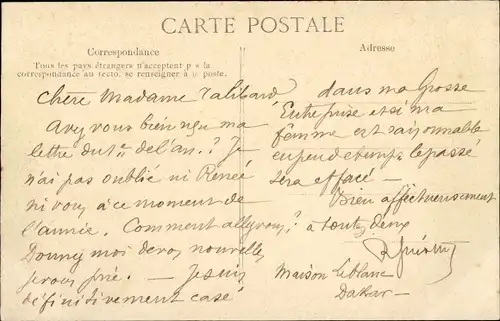 CARTE POSTALE
Correspondance
Tous les pays étrangers n'acceptent pas la
correspondance au recto, se renseigner à la poste.
Adresse
Chère Madame
Avez vous bien reçu ma
lettre du 1er de l'an? Je
n'ai pas oublié ni Renée
ni vous à ce moment de
l'année. Comment allez vous?
Donnez moi de vos nouvelles
je vous prie. — Je suis
définitivement casé
dans ma Grosse
Entreprise et si ma
femme est raisonnable
le passé
sera effacé —
Bien affectueusement
à toutes deux
Maison Leblanc
Dakar —